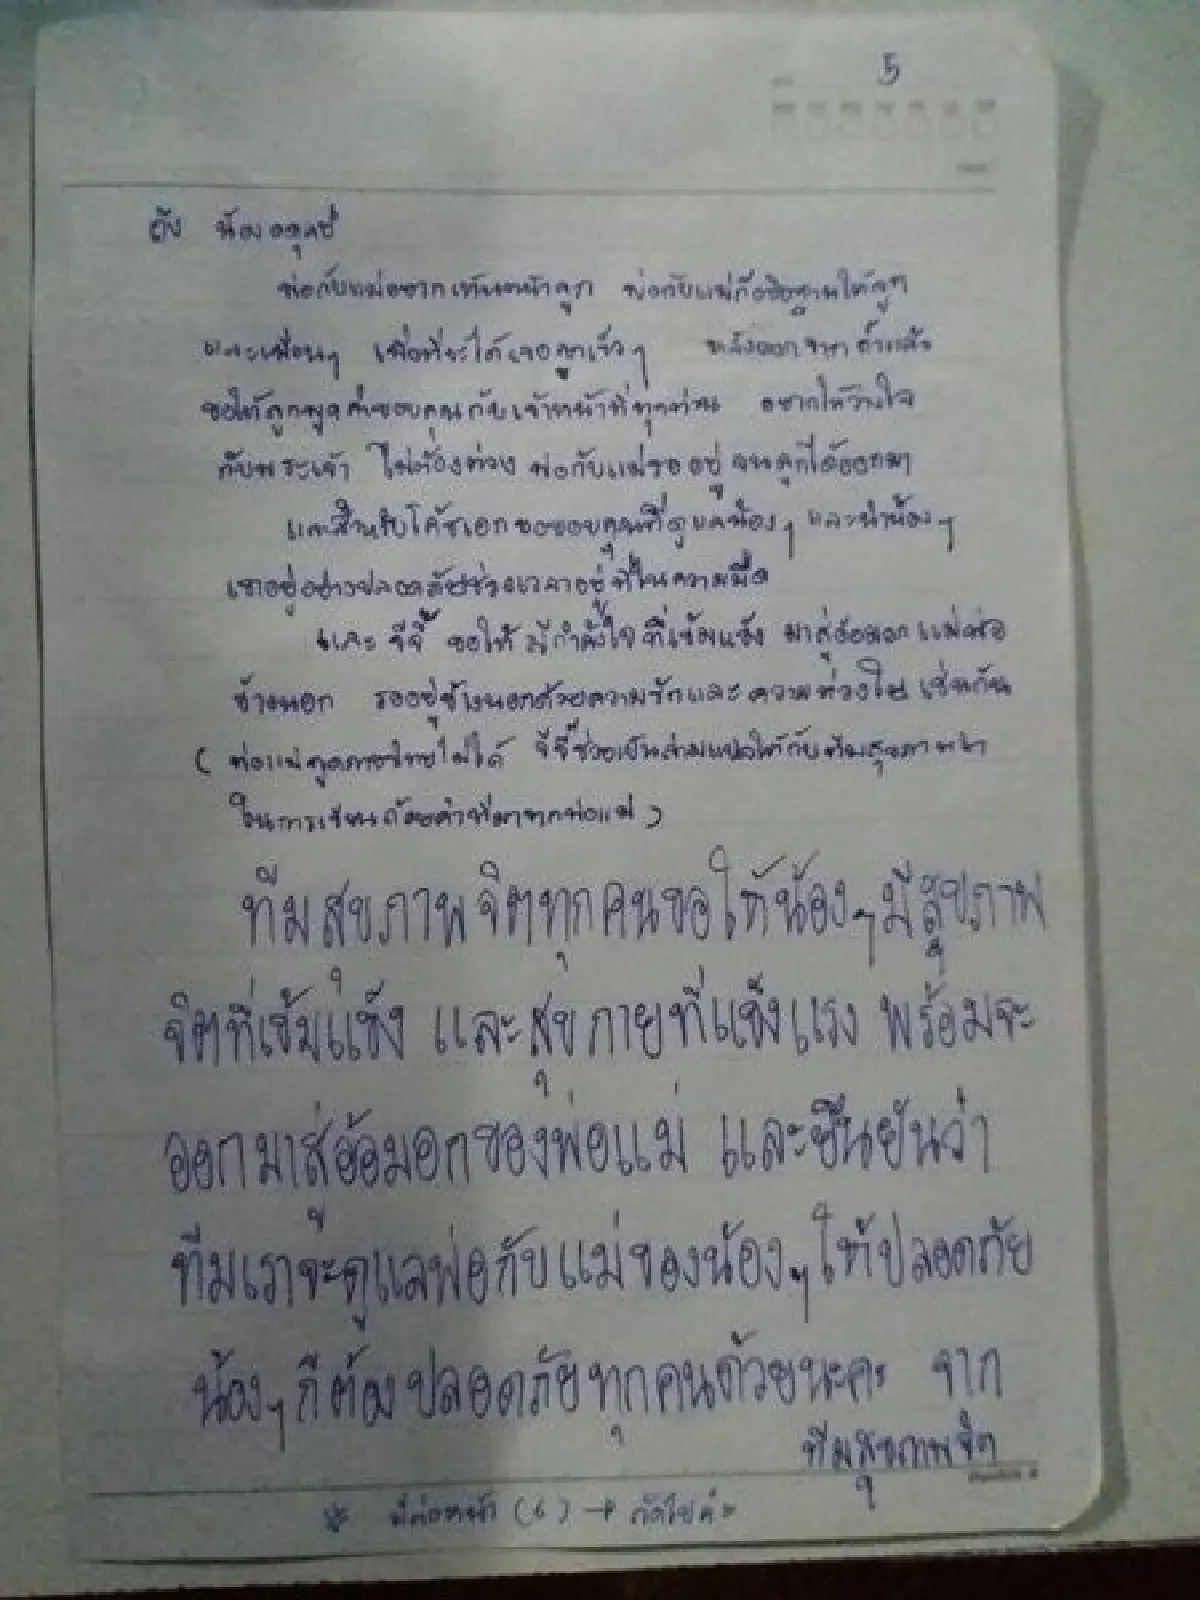 5
ถึง น้องอดุลย์
พ่อกับแม่อยากเห็นหน้าลูก พ่อกับแม่ก็อธิษฐานให้ลูก
และเพื่อนๆ เพื่อที่จะได้เจอลูกเร็วๆ หลังออกจากถ้ำแล้ว
ขอให้ลูกพูดคำขอบคุณกับเจ้าหน้าที่ทุกท่าน อยากให้วางใจ
กับพระเจ้า ไม่ต้องห่วง พ่อกับแม่รออยู่จนลูกได้ออกมา
และสำหรับโค้ชเอกขอขอบคุณที่ดูแลน้องๆ และนำน้องๆ
เขาอยู่อย่างปลอดภัยช่วงเวลาอยู่ที่ในความมืด
และ จีจี้ ขอให้มีกำลังใจที่เข้มแข็ง มาสู่อ้อมอกแม่พ่อ
ข้างนอก รออยู่ข้างนอกด้วยความรักและความห่วงใย เช่นกัน
(พ่อแม่พูดภาษาไทยไม่ได้ จีจี้ช่วยเป็นล่ามแปลให้กับทีมสุขภาพ
ในการเขียนถ้อยคำที่มาจากพ่อแม่)
ทีมสุขภาพจิตทุกคนขอให้น้องๆมีสุขภาพ
จิตที่เข้มแข็ง และสุขกายที่แข็งแรง พร้อมจะ
ออกมาสู่อ้อมอกของพ่อแม่ และยืนยันว่า
ทีมเราจะดูแลพ่อกับแม่ของน้องๆให้ปลอดภัย
น้องๆก็ต้องปลอดภัยทุกคนด้วยนะคะ จาก
ทีมสุขภาพจิต
* มีต่อหน้า (6) → ถัดไปค่ะ